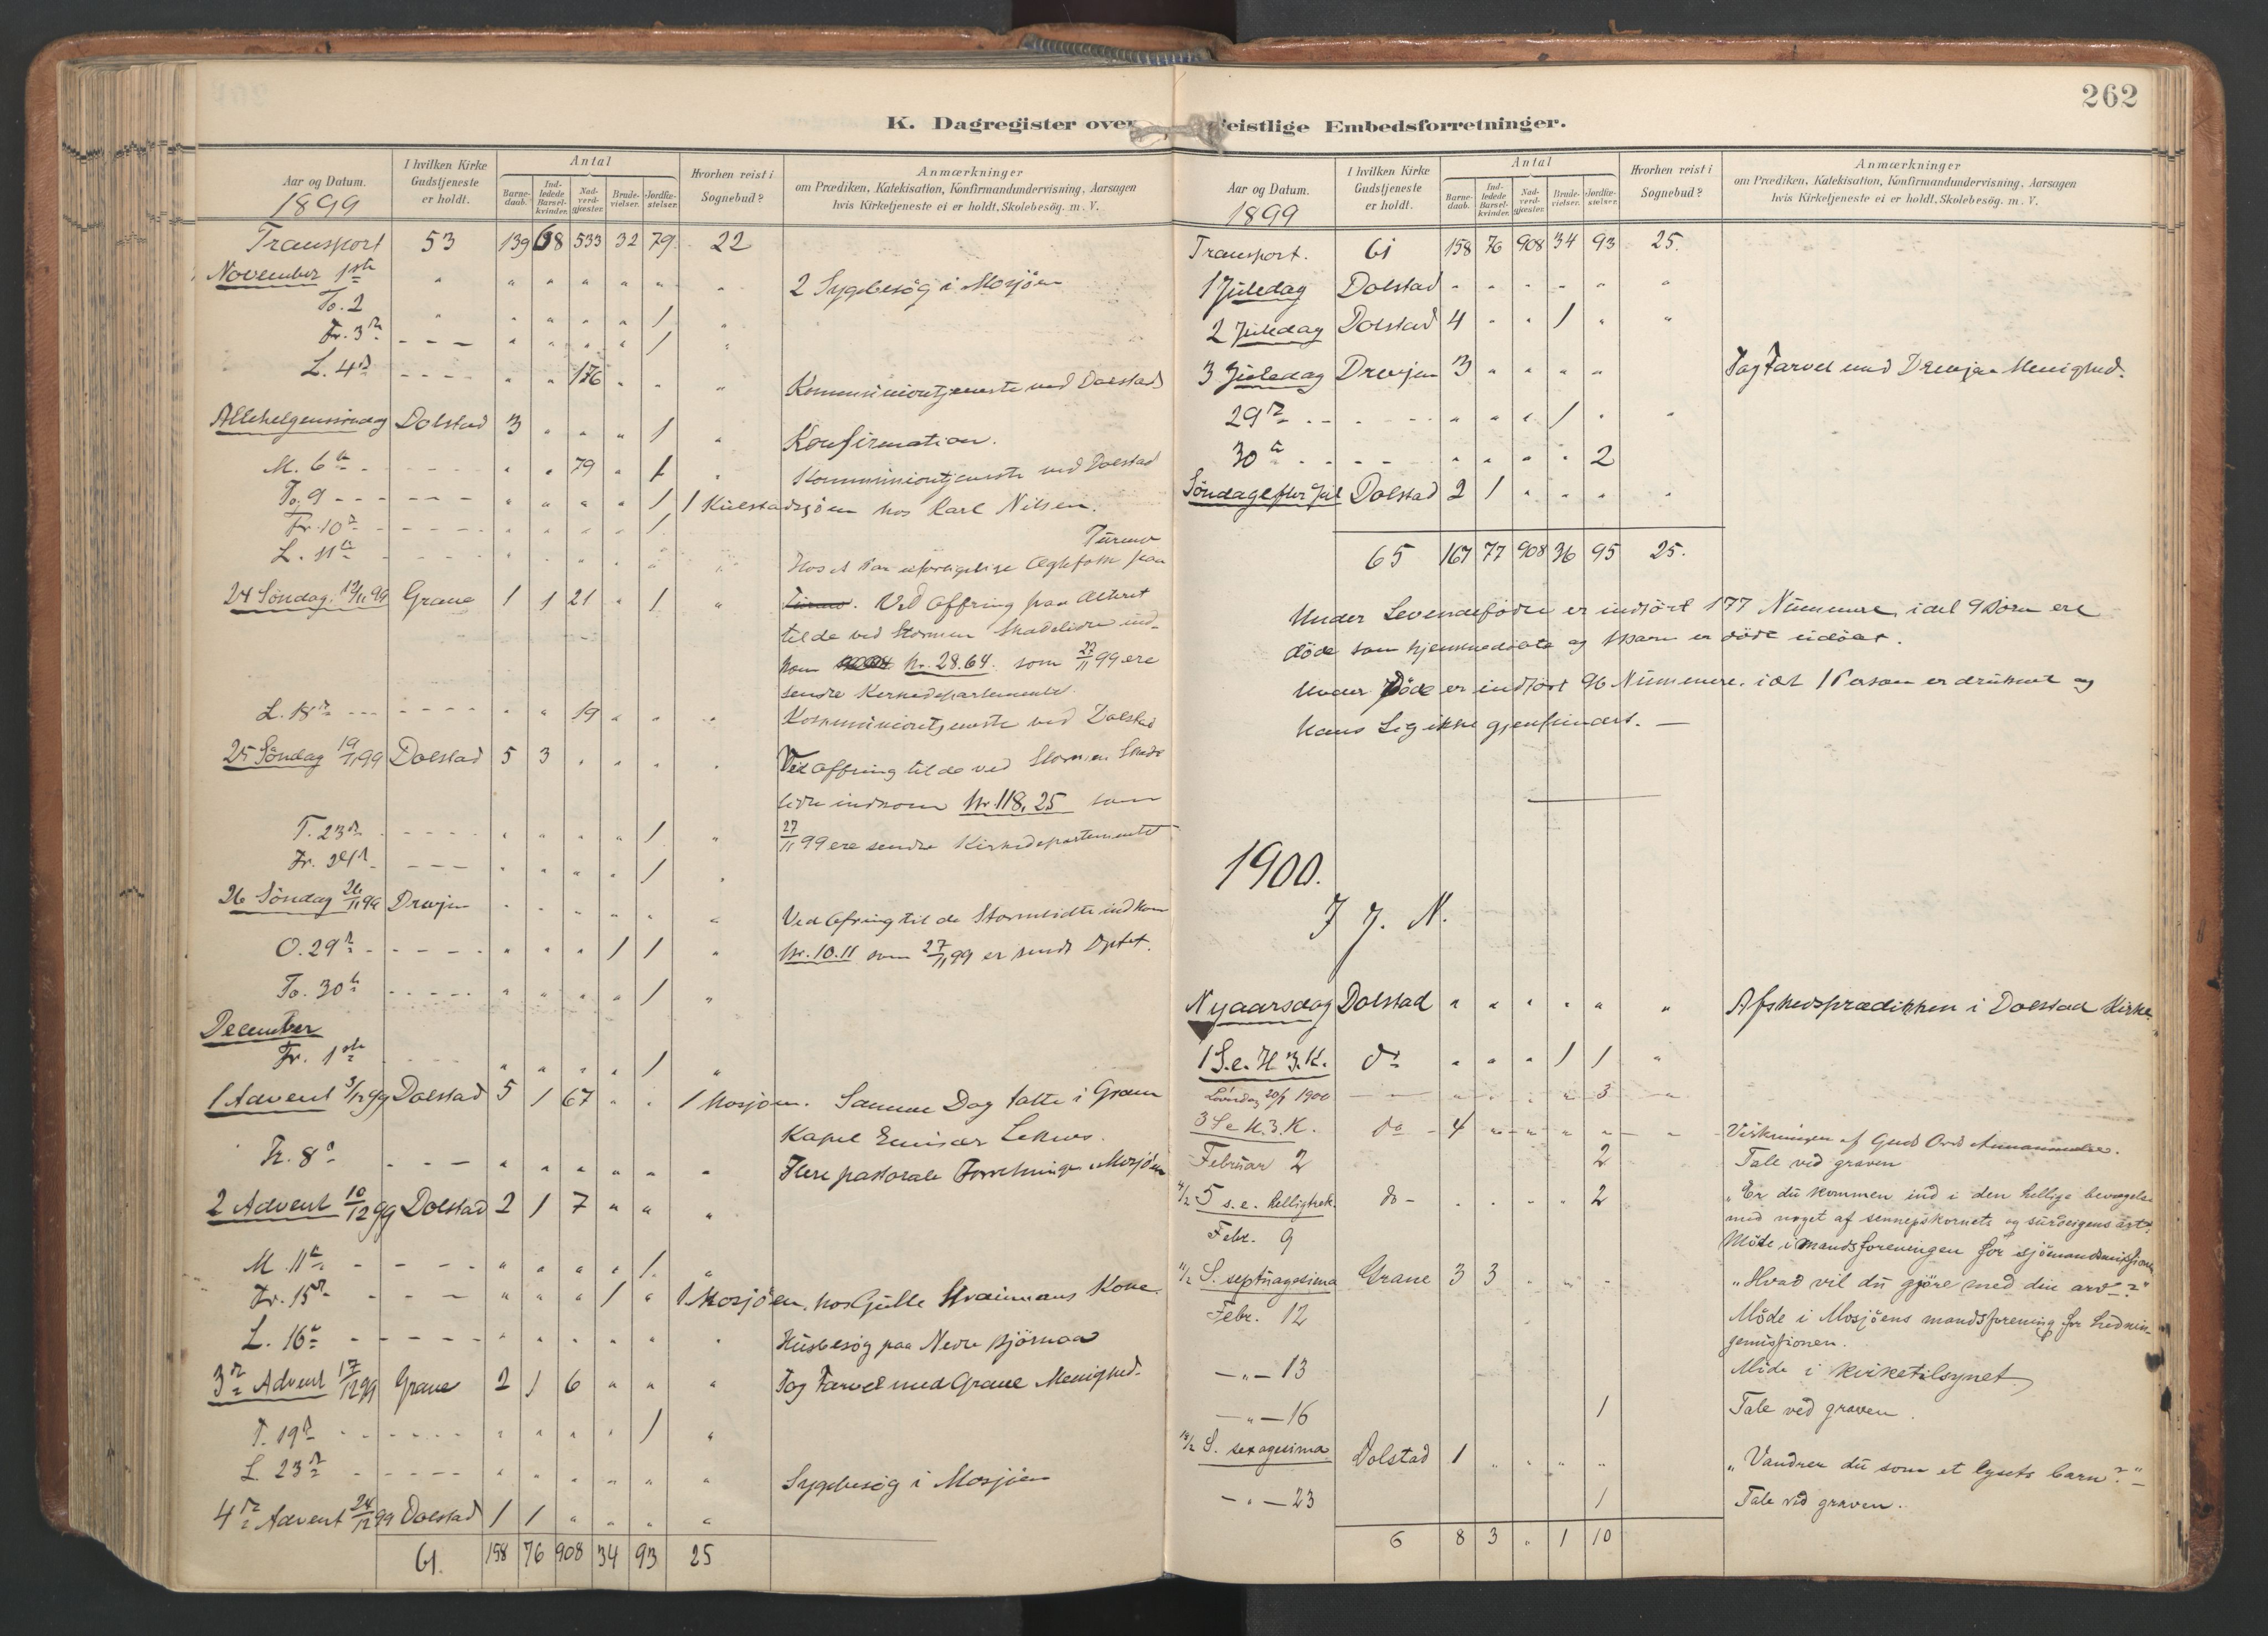 262
K. Dagregister over
eistlige Embedsforretninger.
Aar og Datum.
1899
I hvilken Kirke
Gudstjeneste
er holdt.
Antal
Barne-
daab.
Ind-
ledede
Barsel-
kvinder.
Nad-
verd-
gjæster.
Brude-
vielser.
Jordfæ-
stelser.
Hvorhen reist i
Sognebud?
Anmærkninger
om Prædiken, Katekisation, Konfirmandundervisning, Aarsagen
hvis Kirketjeneste ei er holdt, Skolebesög. m. V.
Transport 53 139 68 533 32 79 22
November 1ste " " " " " " " 2 Sygebesög i Mosjöen
To. 2 " " " " " 1 "
Fr. 3die - - - " " " " 1 "
L. 4de - - - - " " 176 " " " Kommuniontjeneste ved Dolstad
Allehelgensöndag Dolstad 3 " " " 1 " Konfirmation.
M. 6te - - - - " " 79 " 1 " Kommuniontjeneste ved Dolstad
To. 9 - - - - - - " " " " 1 1 Kulstadsjöen hos Carl Nilsen.
Fr. 10de - - - - - " " " " 1
L. 11te - - - - - " " " " " " Hos et Par uforligelige Ægtefolk fra
Turmo
24 Söndag 12/11 99 Grane 1 1 21 " 1 " Turmo. Ved Offring paa Alteret
til de ved Stormen Skadelidte ind-
kom Kr. 28.64. som 22/11 99 ere
sendte Kirkedepartementet.
L. 18de - - - - - - - " " 19 " " " Kommuniontjeneste ved Dolstad
25 Söndag 19/11 99 Dolstad 5 3 " " " " Ved Offring til de ved Stormen Skade
lidte indkom Kr. 118,25 som
T. 23de - - - - " " " " 1 " 27/11 99 ere sendte Kirkedepartementet
Fr. 24de - - - " " " " 1 "
26 Söndag 26/11 99 Drevjen " " " " " " Ved Ofring til de Stormlidte indkom
O. 29de - - - - - " " " 1 1 " Kr. 10.11 som 27/11 99 er sendt Dptet.
To. 30te - - - - - " " " " 1 "
December
Fr. 1ste - - - " " " " 1 "
1 Advent 3/12 99 Dolstad 5 1 67 " " 1 Mosjöen. Samme Dag talte i Grane
Kapel Emissær
Fr. 8de - - - " " " " " " Flere pastorale Forretninger i Mosjöen
2 Advent 10/12 99 Dolstad 2 1 7 " " "
M. 11te - - - - - " " " " 1 "
Fr. 15de - - - " " " 1 " 1 Mosjöen, hos Gulle Kone.
L. 16de - - - - - " " " " " " Husbesög paa Nedre Bjömaa
3de Advent 17/12 99 Grane 2 1 6 " " " Tog Farvel med Grane Menighed.
T. 19de - - - - - - " " " " 1 "
L. 23de - - - - - " " " " " " Sygebesög i Mosjöen
4de Advent 24/12 99 Dolstad 1 1 " " " "
61. 158 76 908 34 93 25
Aar og Datum.
1899
I hvilken Kirke
Gudstjeneste
er holdt.
Antal
Barne-
daab.
Ind-
ledede
Barsel-
kvinder.
Nad-
verd-
gjæster.
Brude-
vielser.
Jordfæ-
stelser.
Hvorhen reist i
Sognebud?
Anmærkninger
om Prædiken, Katekisation, Konfirmandundervisning, Aarsagen
hvis Kirketjeneste ei er holdt, Skolebesög. m. V.
Transport. 61 158 76 908 34 93 25.
1 Juledag Dolstad " " " " " "
2 Juledag Dolstad 4 " " 1 " "
3 Juledag Drevjen 3 " " " " Tog Farvel med Drevjen Menighed.
29de - - - - - " " " 1 " "
30te - - - - " " " " 2
Söndag efter Jul Dolstad 2 1 " " " "
65 167 77 908 36 95 25.
Under Levendefödte er indfört 177 Nummere, idet 9 Börn ere
döde som hjemmedöbte og 1 Barn er död udöbt.
Under Döde er indfört 96 Nummere. idet 1 Person er druknet og
hans Lig ikke gjenfundet. —
1900.
I J. N.
Nyaarsdag Dolstad " " " " " " Afskedsprædikken i Dolstad Kirke.
1 S.e. H3.K. do " " " 1 1 "
Löverdag 20/1 1900 — — " " " " 3 "
3 S e H.3.K. do - 4 " " " " " Virkningen af Guds Ords Annammelse.
Februar 2 2 Tale ved graven
4/2 5 s.e. helligtrek. do - " " " " 2 "Er du kommen ind i den hellige bevægelse
med noget af sennepskornets og surdeigens art?
Febr. 9 Möde i mandsforeningen for sjömandsmissionen
11/2 S. septuagesima Grane 3 3 " " " "Hvad vil du gjöre med din arv?"
Febr. 12 Möde i Mosjöens mandsforening for hednin-
gemissionen.
— " — 13 Möde i kirketilsynet
— " — 16 1 Tale ved graven.
18/2 S. sexagesima Dolstad 1 " " " " "Vandrer du som et lysets barn?"
— " — 23 1 Tale ved graven.
6 8 3 " 1 10